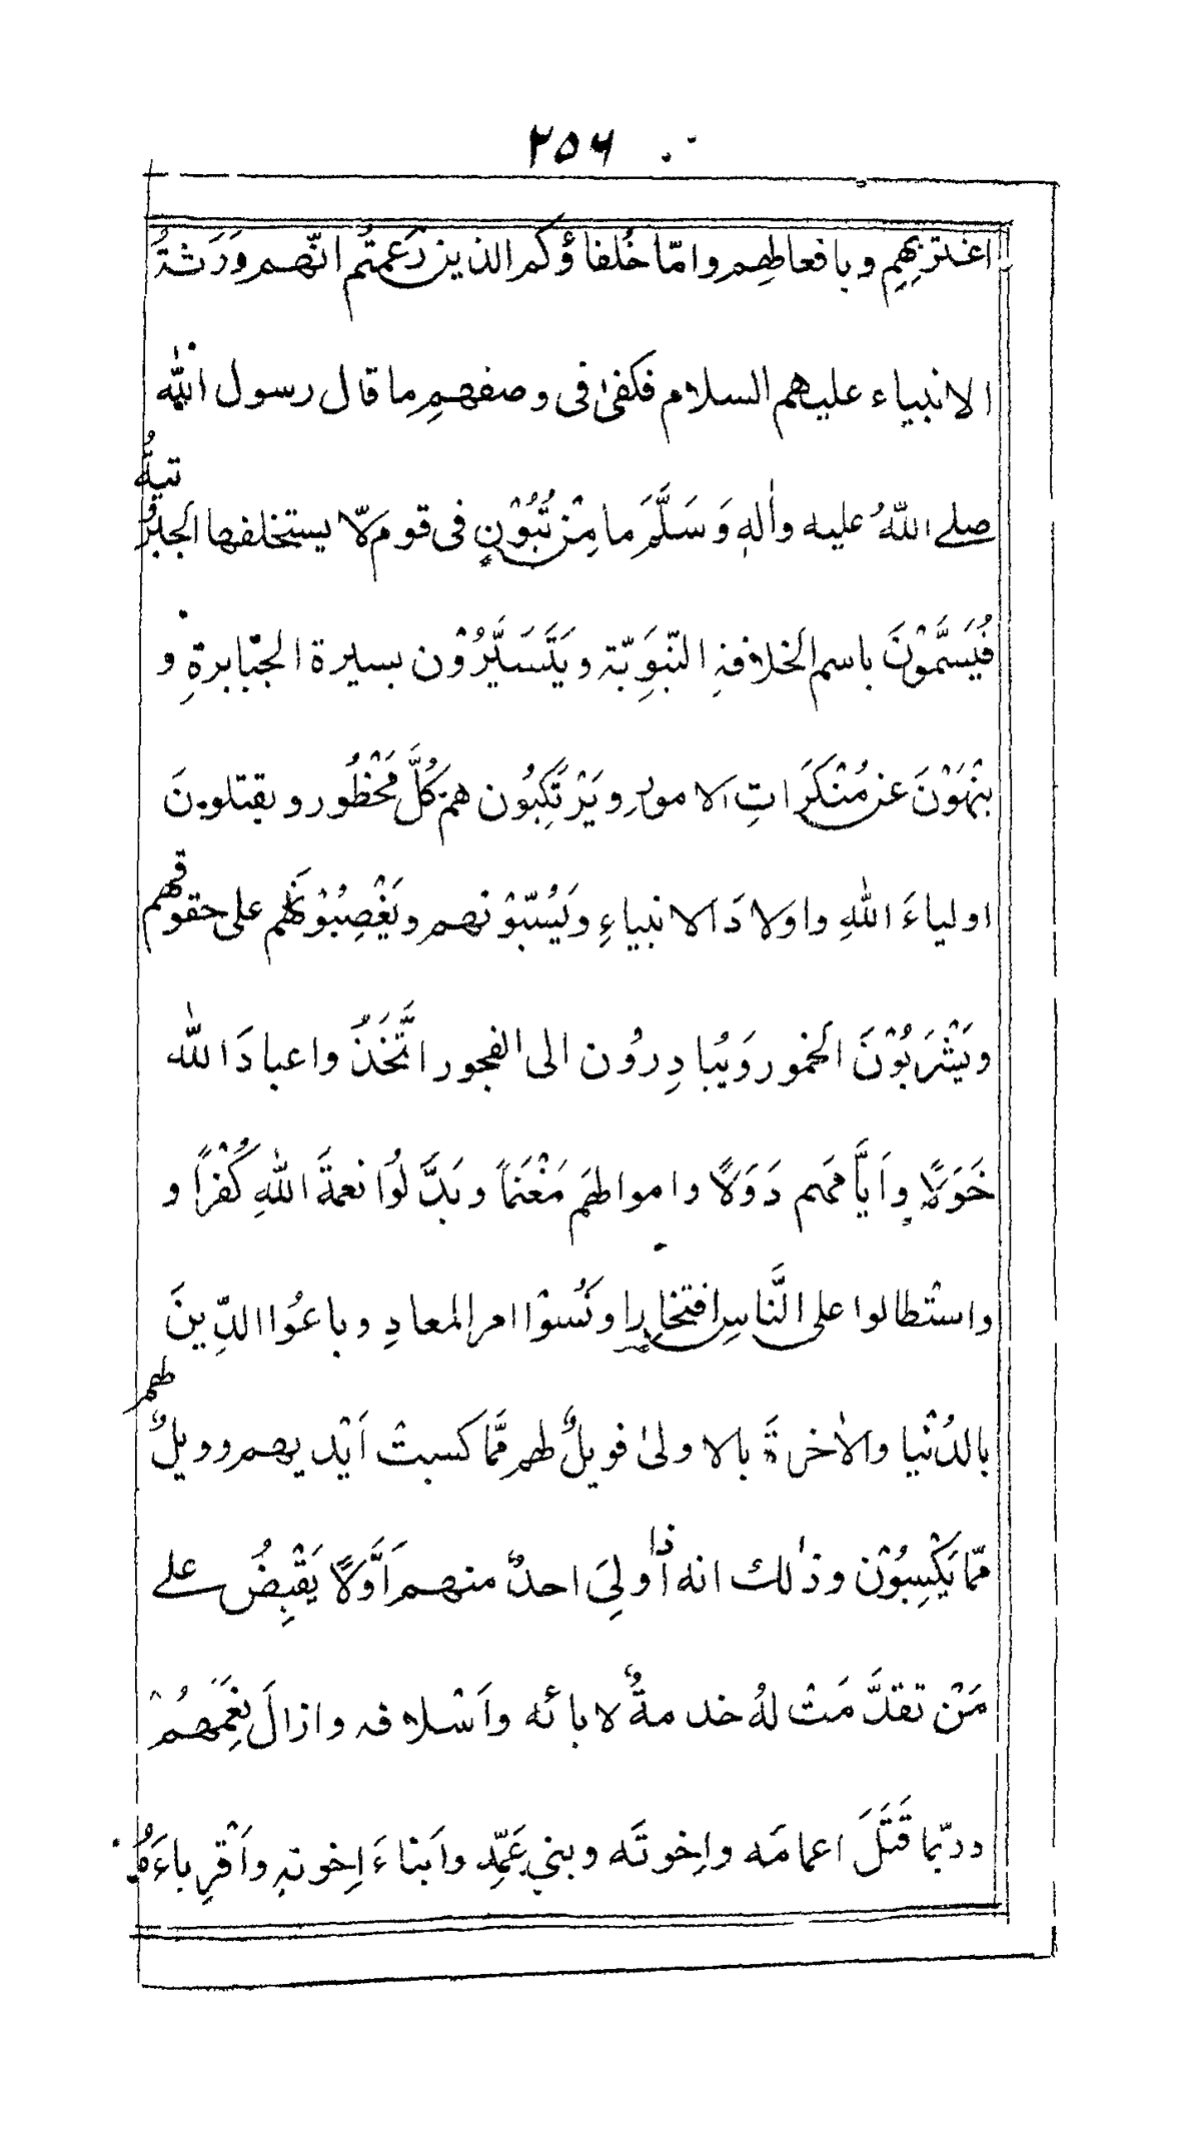 ۲۵۶
اغتربهم وبافعالهم وامّا خُلفاؤكم الذين زعمتُم انّهم وَرَثَةُ
الانبياء عليهم السلام فكفىٰ فى وصفهم ما قال رسول اللّٰه
صلى اللّٰهُ عليه واٰله وَسَلَّمَ ما مِنْ نُبُوَّةٍ فى قوم لّا يستخلفها الجبرُوتيةُ
فُيَسَمَّوْنَ باسم الخلافة النّبَوِيّة ويَتَسَيَّرُوْن بسيرة الجبّابرةِ و
ينْهَوْنَ عن مُنْكَرَاتِ الامورِ ويَرْتَكِبُون هم كُلَّ مَحْظُور ويقتلونَ
اولياءَ اللهِ واولادَ الانبياءِ ويَسُبّوْنهم ويَغْصِبُوْنَهُم على حقوقهم
ويَشْرَبُوْنَ الخمور وَيُبادِرُون الى الفجور اتَّخَذُوا عبادَ اللّٰه
خَوَلًا واَيَّامَهم دَوَلًا واموالَهم مَغْنَمًا وبَدَّلُوا نعمةَ اللهِ كُفْرًا و
واسْتطالوا على النَّاسِ افتخارا ونَسُوْا امر المعادِ وباعُوا الدِّينَ
بالدُنْيا والاٰخرةَ بالاولىٰ فويلٌ لهم مّمَّا كسبتْ اَيْديهم وويلٌ لهم
مّمّا يَكْسِبُوْن وذٰلك انه اذا وَلِىَ احدٌ منهم اَوَّلًا يَقْبِضُ على
مَنْ تقدَّمَتْ لهُ خدمةٌ لابائه واَسْلافه وازالَ نِعَمَهُمْ
وربّما قَتَلَ اعمامَه واِخوتَه وبني عَمِّه واَبناءَ اِخوته واَقْرِباءَهُ